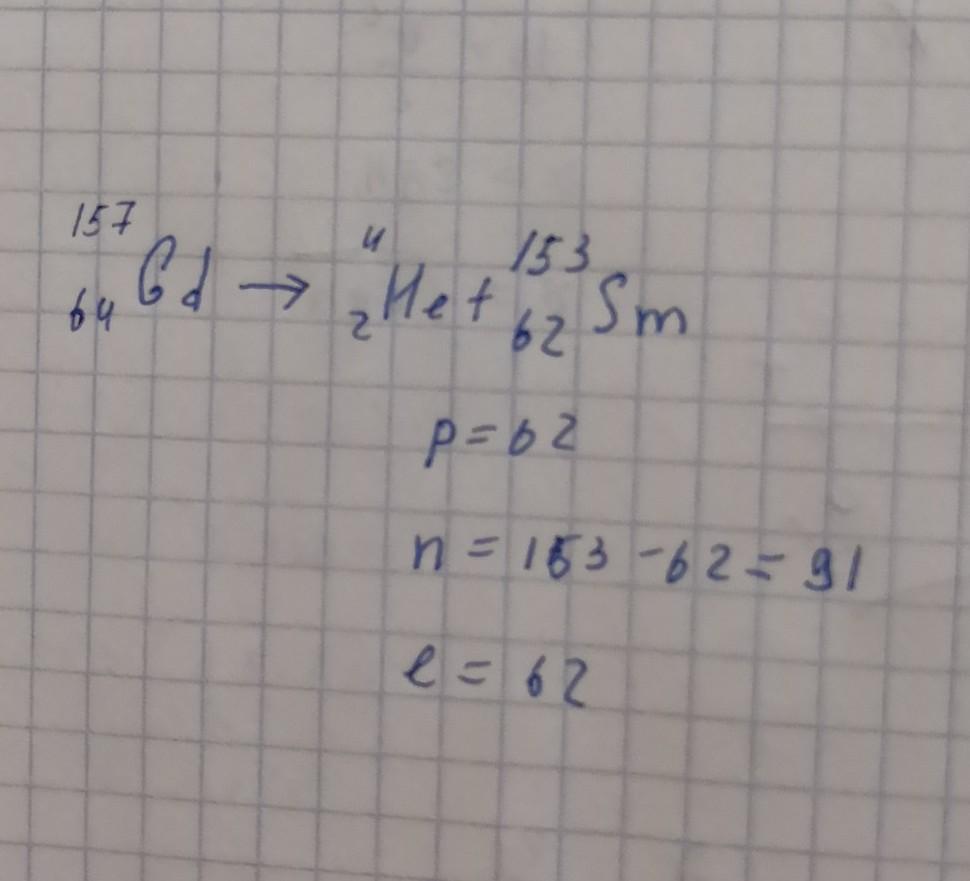 ¹⁵⁷₆₄Gd → ⁴₂He + ¹⁵³₆₂Sm
p = 62
n = 153 - 62 = 91
e = 62